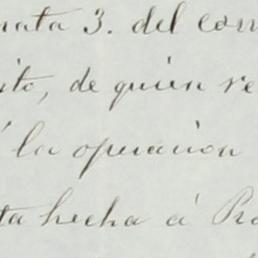 nata 3. del com
ito, de quien re
á la operacion
ta hecha á Ro